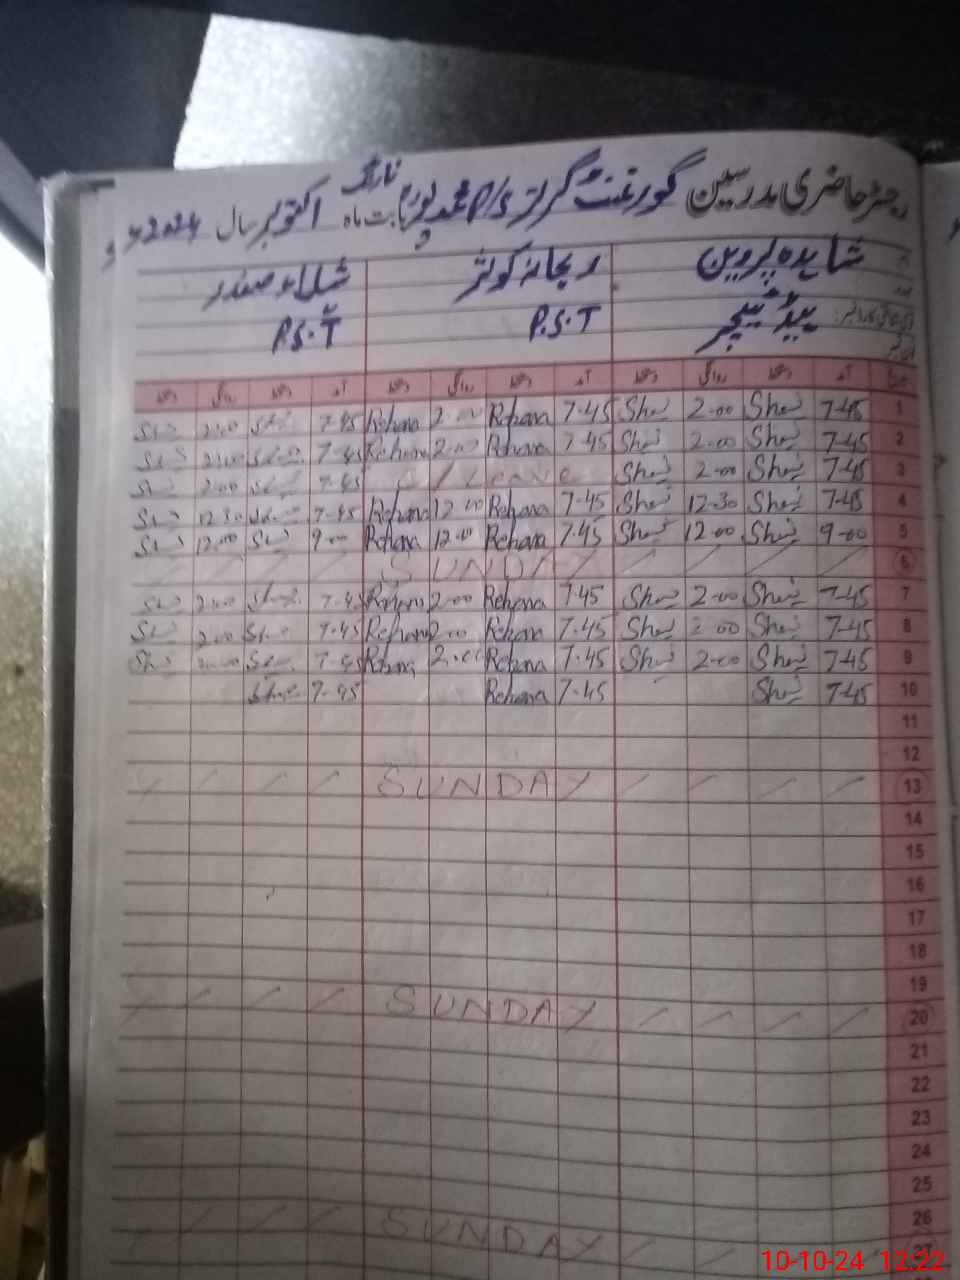 رجسٹر حاضری مدرسین گورنمنٹ گرلز P/S محمد پور بابت ماہ اکتوبر سال 2024ء
شاہدہ پروین ریحانہ کوثر شمائلہ صفدر
ہیڈ ٹیچر P.S.T P.S.T
آمد دستخط روانگی دستخط آمد دستخط روانگی دستخط آمد دستخط روانگی دستخط
1 7-45 She 2-00 She 7-45 Rehana 2-00 Rehana 7-45 2-00
2 7-45 She 2-00 She 7-45 Rehana 2-00 Rehana 7-45 2-00
3 7-45 She 2-00 She Leave 7-45 2-00
4 7-45 She 12-30 She 7-45 Rehana 12-00 Rehana 7-45 12-30
5 9-00 She 12-00 She 7-45 Rehana 12-00 Rehana 9-00 12-00
6 SUNDAY
7 7-45 She 2-00 She 7-45 Rehana 2-00 Rehana 7-45 2-00
8 7-45 She 2-00 She 7-45 Rehana 2-00 Rehana 7-45 2-00
9 7-45 She 2-00 She 7-45 Rehana 2-00 Rehana 7-45
10 7-45 She 7-45 Rehana 7-45
11
12
13 SUNDAY
14
15
16
17
18
19
20 SUNDAY
21
22
23
24
25
26
27 SUNDAY
10-10-24 12:22